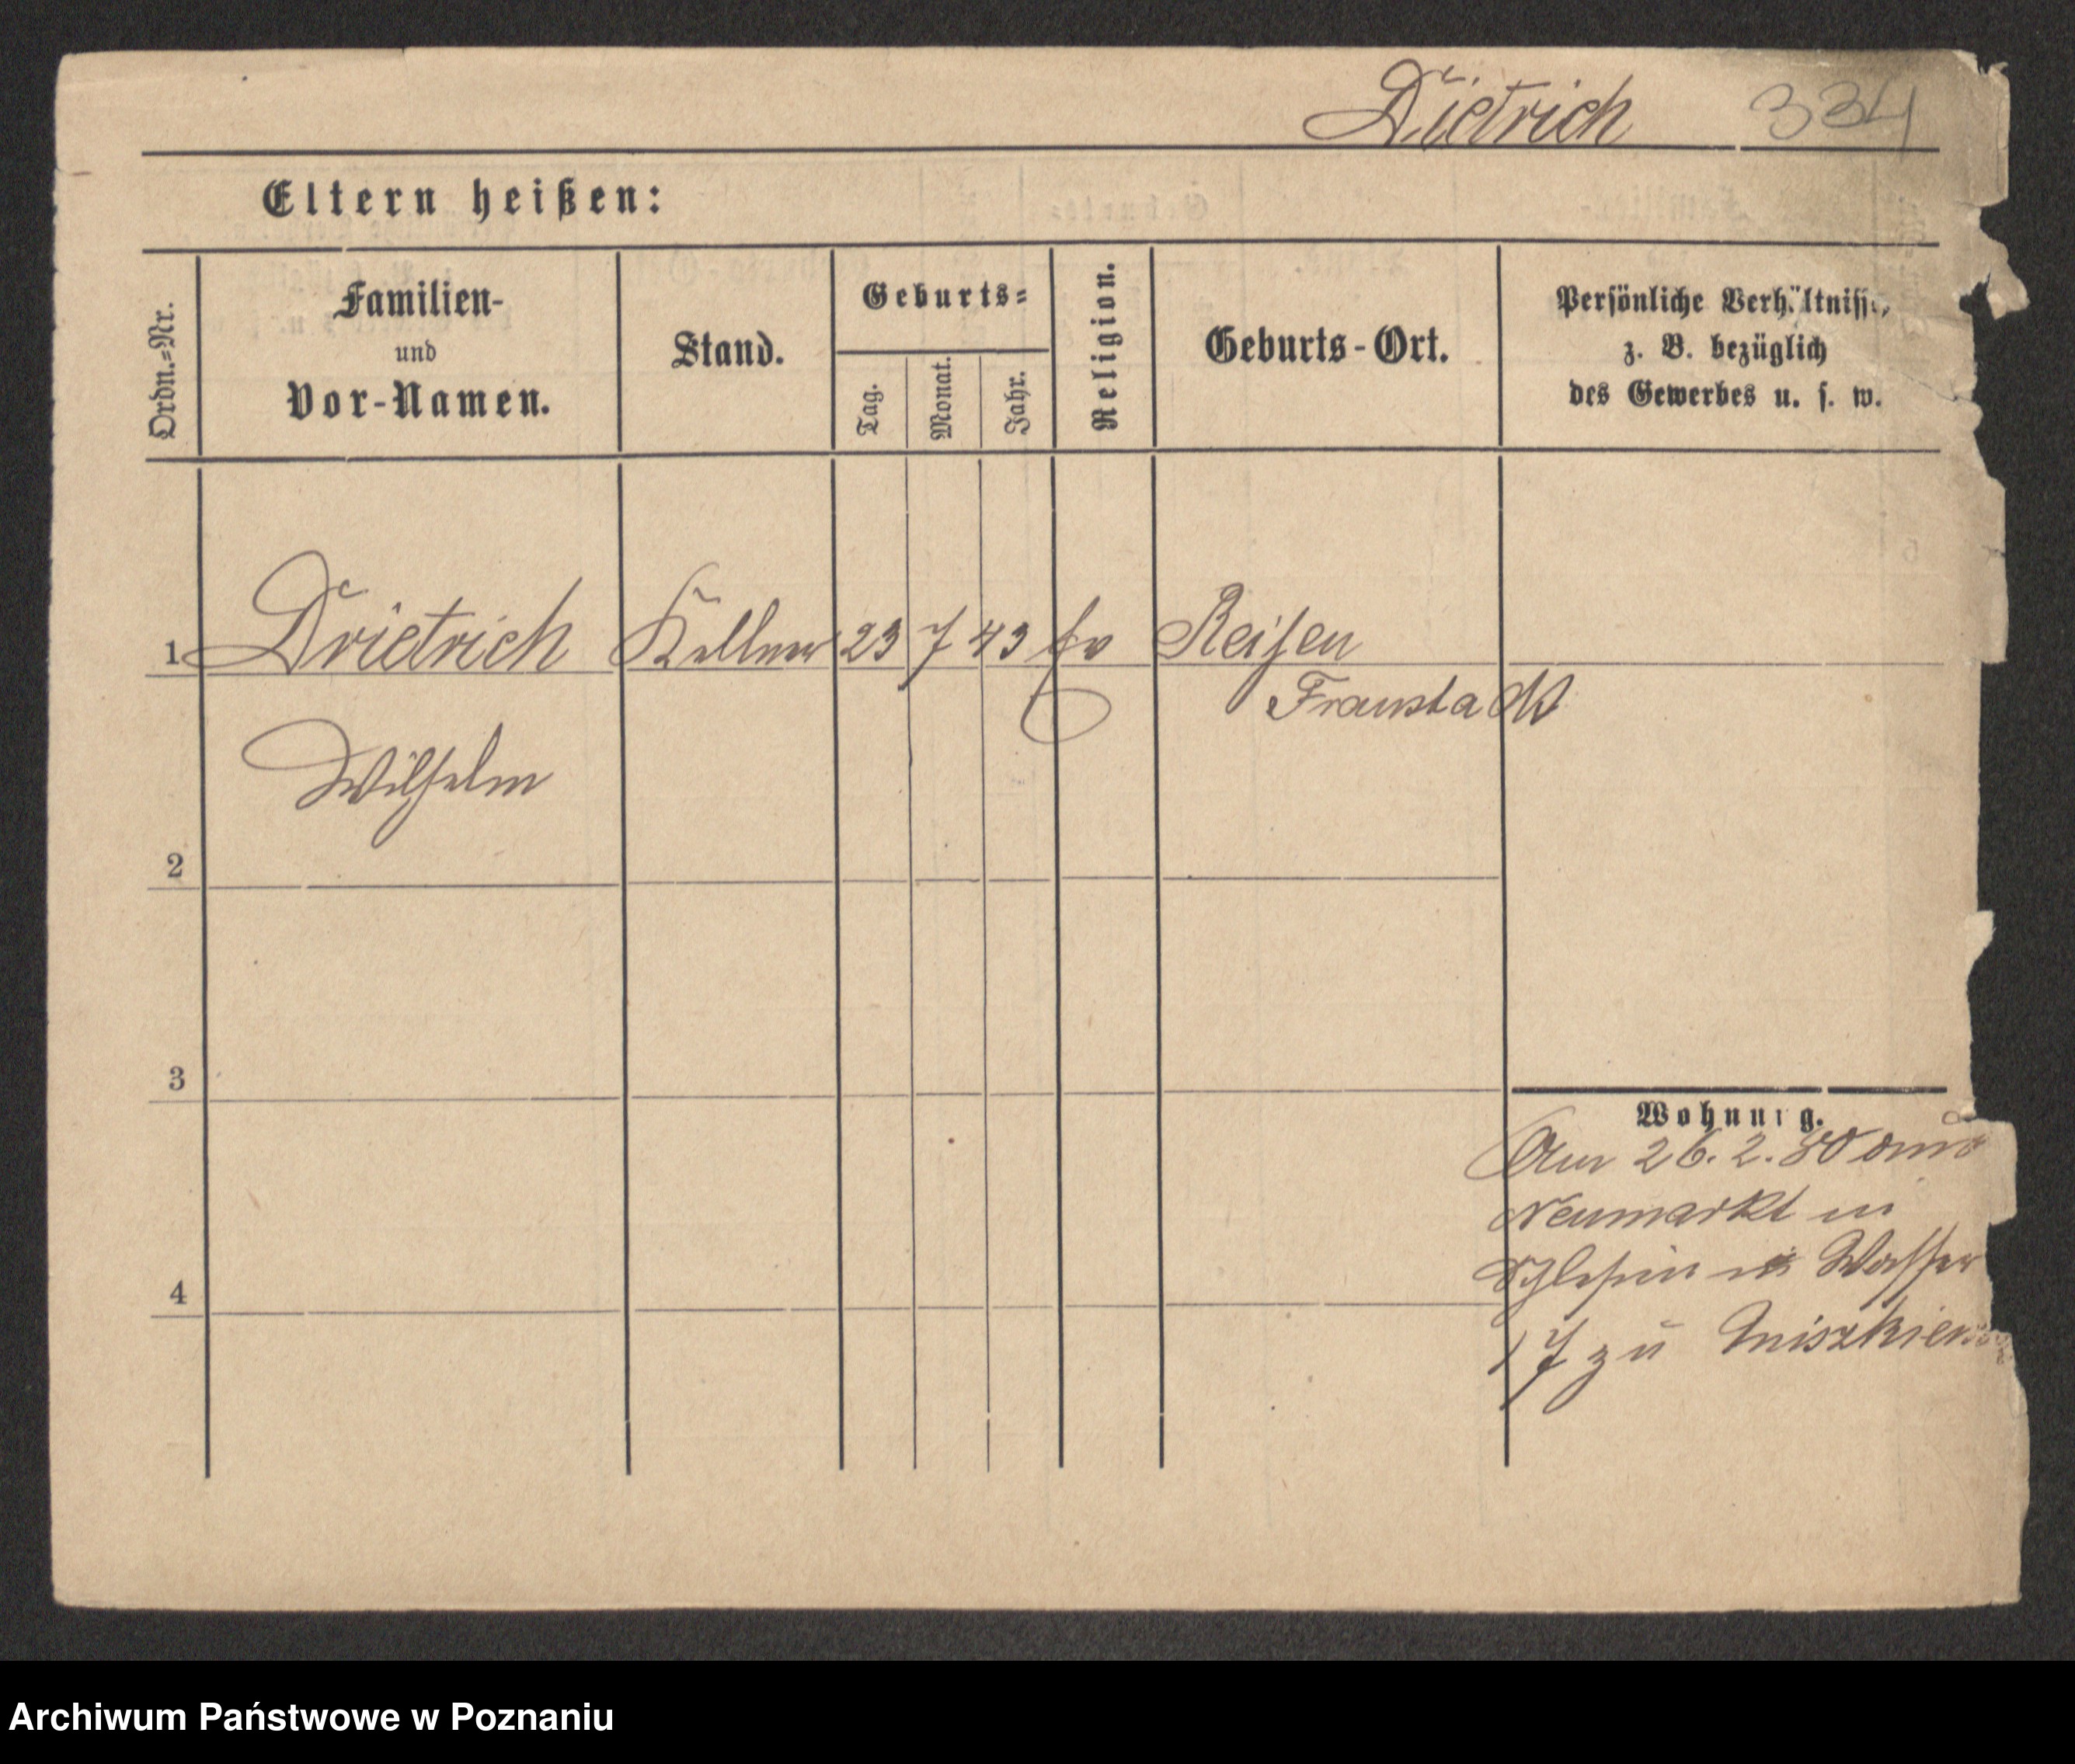 Dietrich 334
Eltern heißen:
Ordn.-Nr.
Familien-
und
Vor-Namen.
Stand.
Geburts-
Tag.
Monat.
Jahr.
Religion.
Geburts-Ort.
Persönliche Verhältnisse,
z. B. bezüglich
des Gewerbes u. s. w.
1 Drietrich Kellner 23 7 43 Reisen
Fraustadt
Wilhelm
2
3
Wohnung.
Am 26. 2. 80 aus
Neumarkt in
Schlesien Wasser
4
17 zu
Archiwum Państwowe w Poznaniu